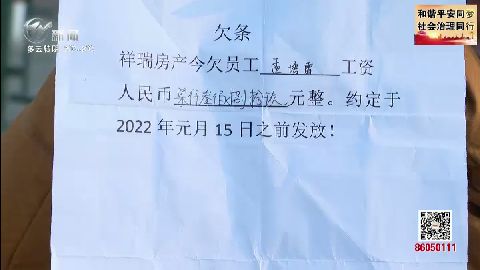 新闻
和谐平安同梦
社会治理同行
欠条
祥瑞房产今欠员工 工资
人民币 元整。约定于
2022年元月15日之前发放！
86050111